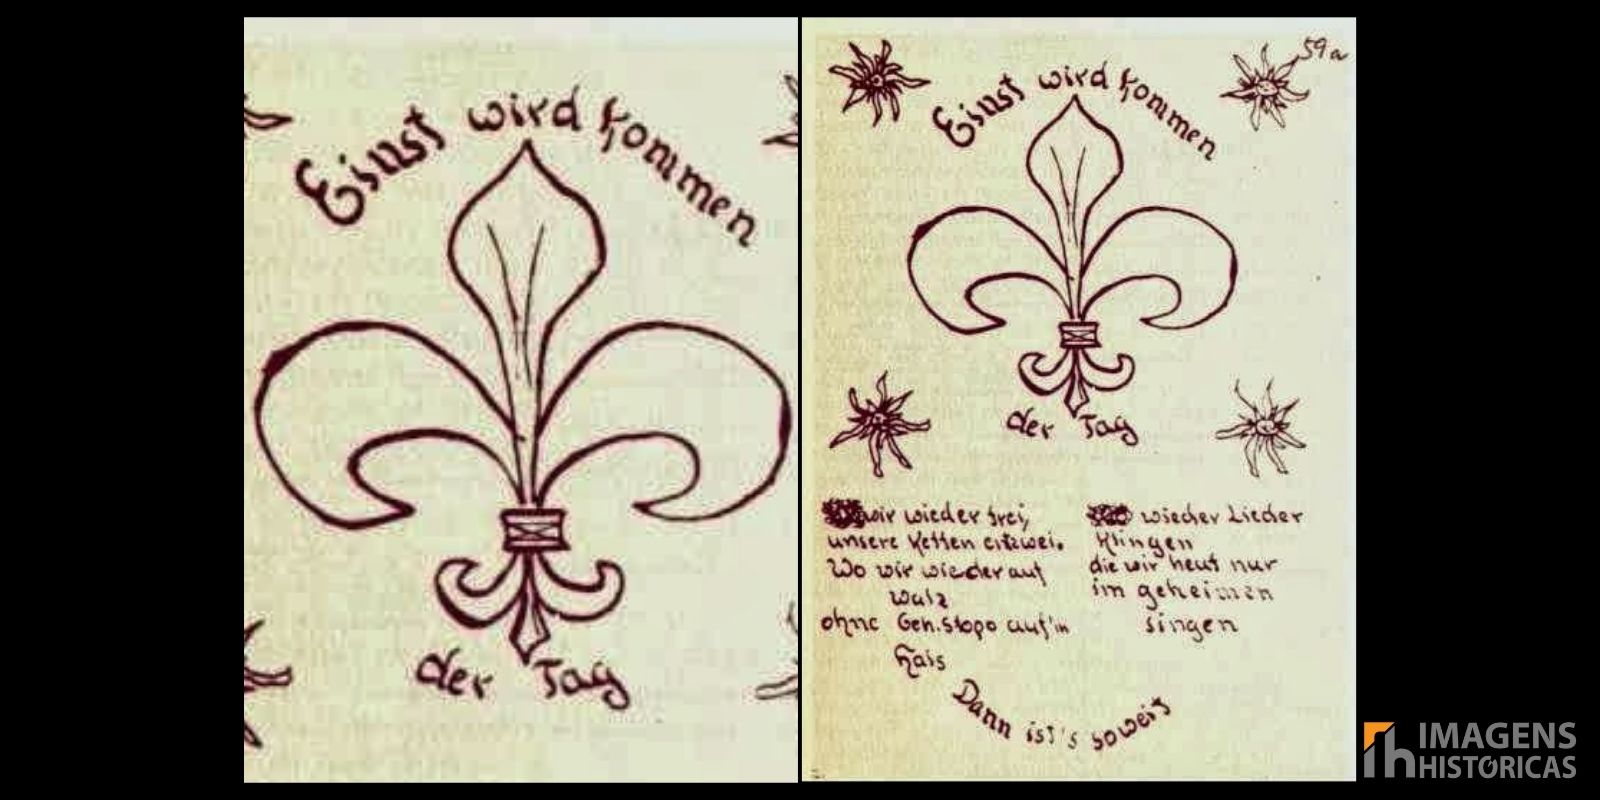 Einst wird kommen
der Tag
59a
Einst wird kommen
der Tag
wir wieder frei,
unsere Ketten entzwei.
Wo wir wieder auf
Walz
ohne Geh.Stapo auf'm
Hals
wieder Lieder
klingen
die wir heut nur
im geheimen
singen
Dann ist's soweit
IMAGENS
HISTÓRICAS